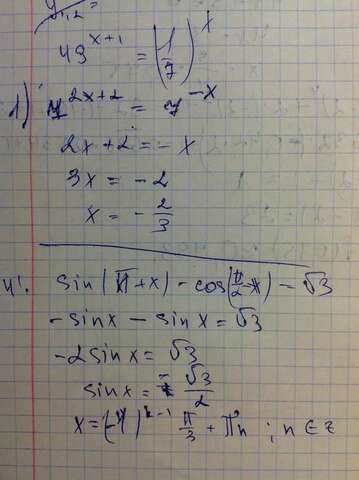 49^{x+1} = (1/7)^x
1) 7^{2x+2} = 7^{-x}
2x+2 = -x
3x = -2
x = -2/3
4'. sin(π+x) - cos(π/2-x) = √3
-sinx - sinx = √3
-2sinx = √3
sinx = -√3/2
x = (-1)^{k-1} π/3 + πn ; n ∈ z